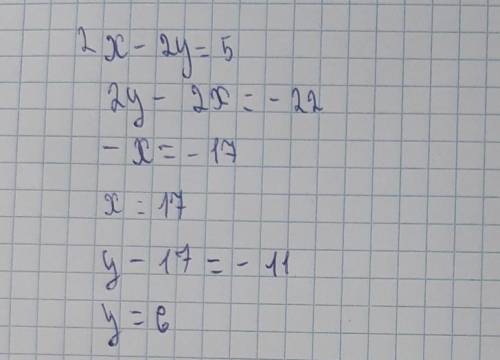 2 x - 2y = 5
2y - 2x = - 22
- x = - 17
x = 17
y - 17 = - 11
y = 6